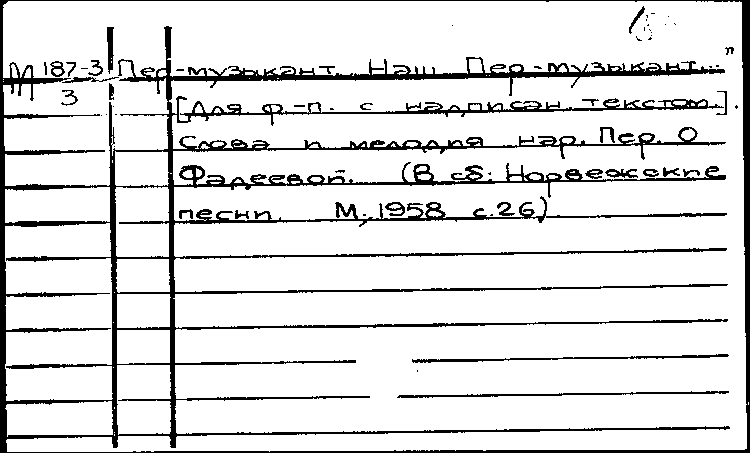 М 187-3 Пер-музыкант. "Наш Пер-музыкант..."
3 [Для ф.-п. с надписан. текстом].
Слова и мелодия нар. Пер. О
Фадеевой. (В сб: Норвежские
песни. М., 1958 с.26)